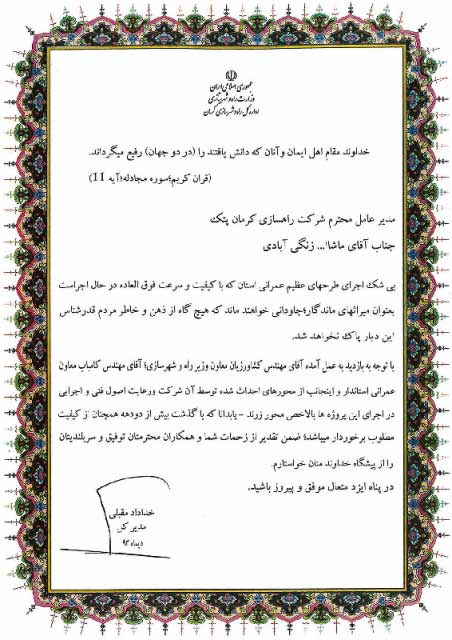 جمهوری اسلامی ایران
وزارت راه و شهرسازی
اداره کل راه و شهرسازی کرمان
خداوند مقام اهل ایمان و آنان که دانش یافتند را (در دو جهان) رفیع میگرداند.
(قران کریم؛سوره مجادله؛آیه 11)
مدیر عامل محترم شرکت راهسازی کرمان پتک
جناب آقای ماشاا... زنگی آبادی
بی شک اجرای طرحهای عظیم عمرانی استان که با کیفیت و سرعت فوق العاده در حال اجراست
بعنوان میراثهای ماندگار؛جاودانی خواهند ماند که هیچ گاه از ذهن و خاطر مردم قدرشناس
این دیار پاک نخواهد شد.
با توجه به بازدید به عمل آمده آقای مهندس کشاورزیان معاون وزیر راه و شهرسازی؛ آقای مهندس کامیاب معاون
عمرانی استاندار و اینجانب از محورهای احداث شده توسط آن شرکت ورعایت اصول فنی و اجرایی
در اجرای این پروژه ها بالاخص محور زرند - بابدانا که با گذشت بیش از دودهه همچنان از کیفیت
مطلوب برخوردار میباشد؛ ضمن تقدیر از زحمات شما و همکاران محترمتان توفیق و سربلندیتان
را از پیشگاه خداوند منان خواستارم.
در پناه ایزد متعال موفق و پیروز باشید.
خداداد مقبلی
مدیر کل
دیماه ۹۳